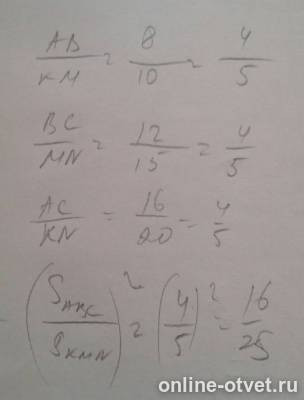 AB/KM = 8/10 = 4/5
BC/MN = 12/15 = 4/5
AC/KN = 16/20 = 4/5
(S_ABC/S_KMN)² = (4/5)² = 16/25
online-otvet.ru